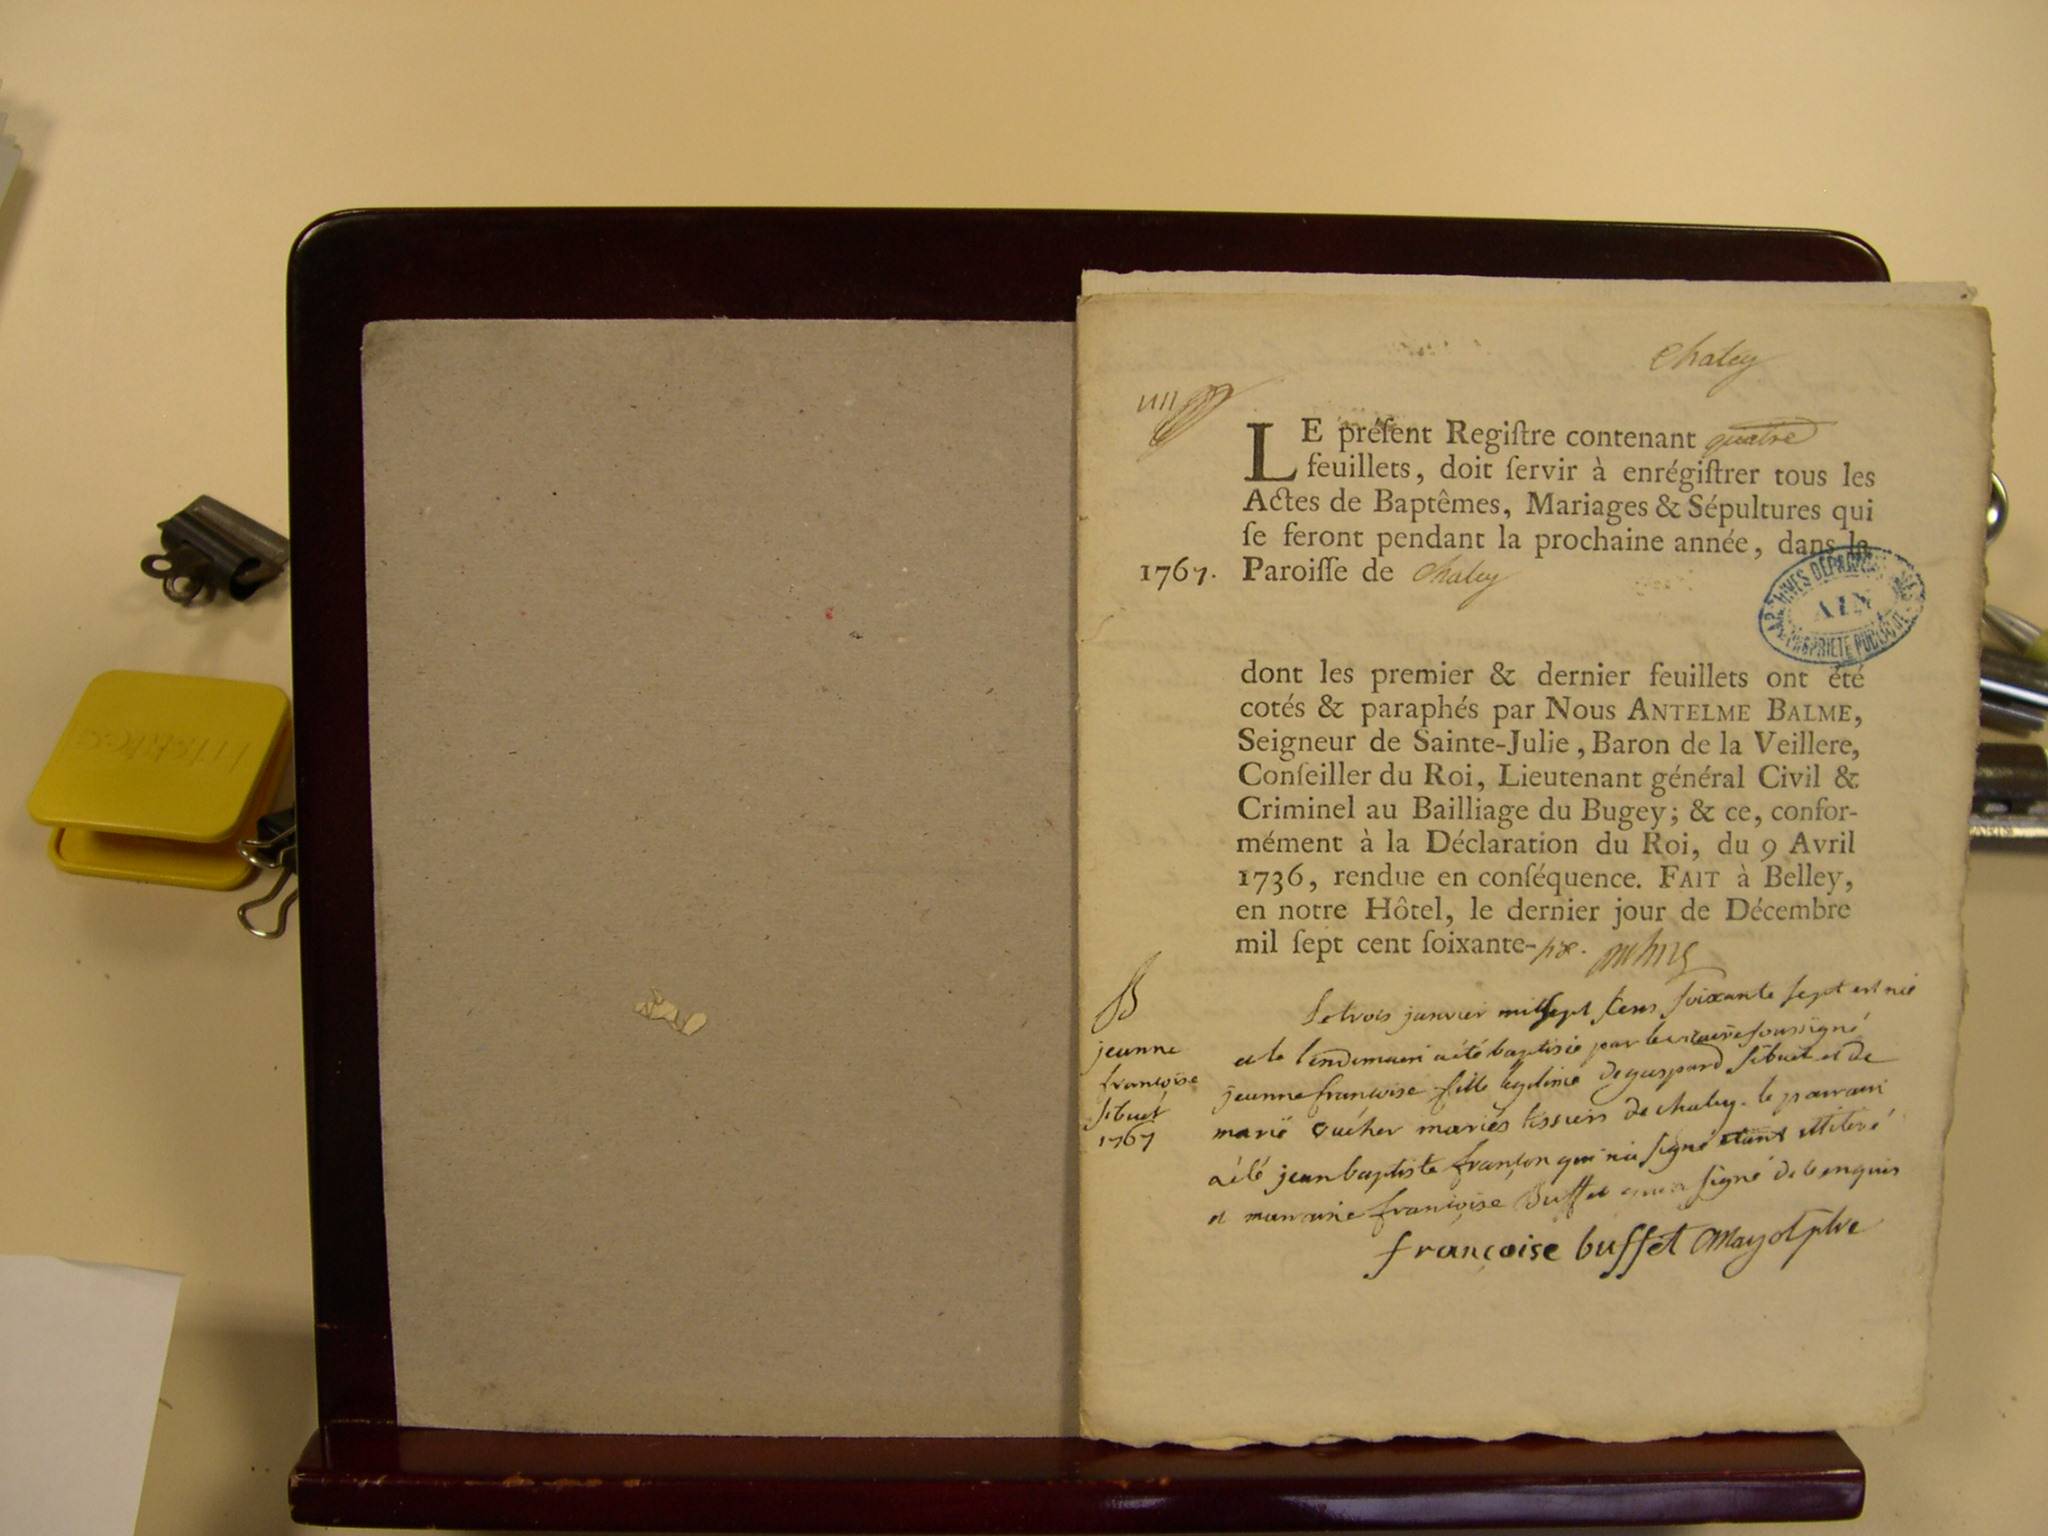 Chaley
LE préſent Regiſtre contenant quatre
feuillets, doit ſervir à enrégiſtrer tous les
Actes de Baptêmes, Mariages & Sépultures qui
ſe feront pendant la prochaine année, dans la
1767. Paroiſſe de Chaley
ARCHIVES DÉPARTEMENTALES
AIN
PROPRIÉTÉ PUBLIQUE
dont les premier & dernier feuillets ont été
cotés & paraphés par Nous ANTELME BALME,
Seigneur de Sainte-Julie, Baron de la Veillere,
Conſeiller du Roi, Lieutenant général Civil &
Criminel au Bailliage du Bugey; & ce, confor-
mément à la Déclaration du Roi, du 9 Avril
1736, rendue en conſéquence. FAIT à Belley,
en notre Hôtel, le dernier jour de Décembre
mil ſept cent ſoixante-six.
B
jeanne
françoise
sibuet
1767
Le trois janvier mil sept cens soixante sept est née
et le lendemain a été baptisée par le vicaire soussigné
jeanne françoise fille legitime de gaspard sibuet et de
marie mariés tissiers de chaley. le parrain
a été jean baptiste françon qui n'a signé etant illiteré
et marraine françoise Buffet signé de ce enquis
françoise buffet Mayot ptre